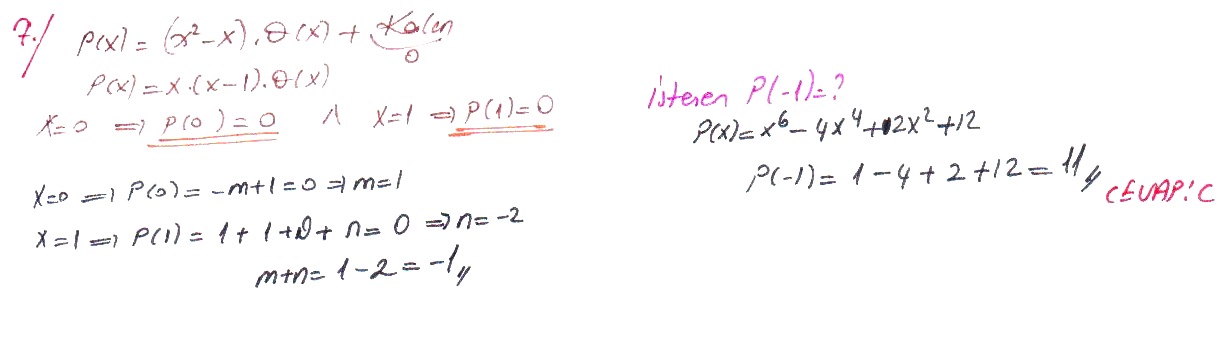 7./ P(x) = (x²-x).Q(x) + Kalan
0
P(x) = x.(x-1).Q(x)
x=0 ⟹ P(0) = 0 ∧ x=1 ⟹ P(1) = 0
x=0 ⟹ P(0) = -m+1 = 0 ⟹ m=1
x=1 ⟹ P(1) = 1 + 1 + 0 + n = 0 ⟹ n=-2
m+n = 1-2 = -1,,
istenen P(-1)=?
P(x) = x⁶ - 4x⁴ + 2x² + 12
P(-1) = 1 - 4 + 2 + 12 = 11,,
CEVAP: C